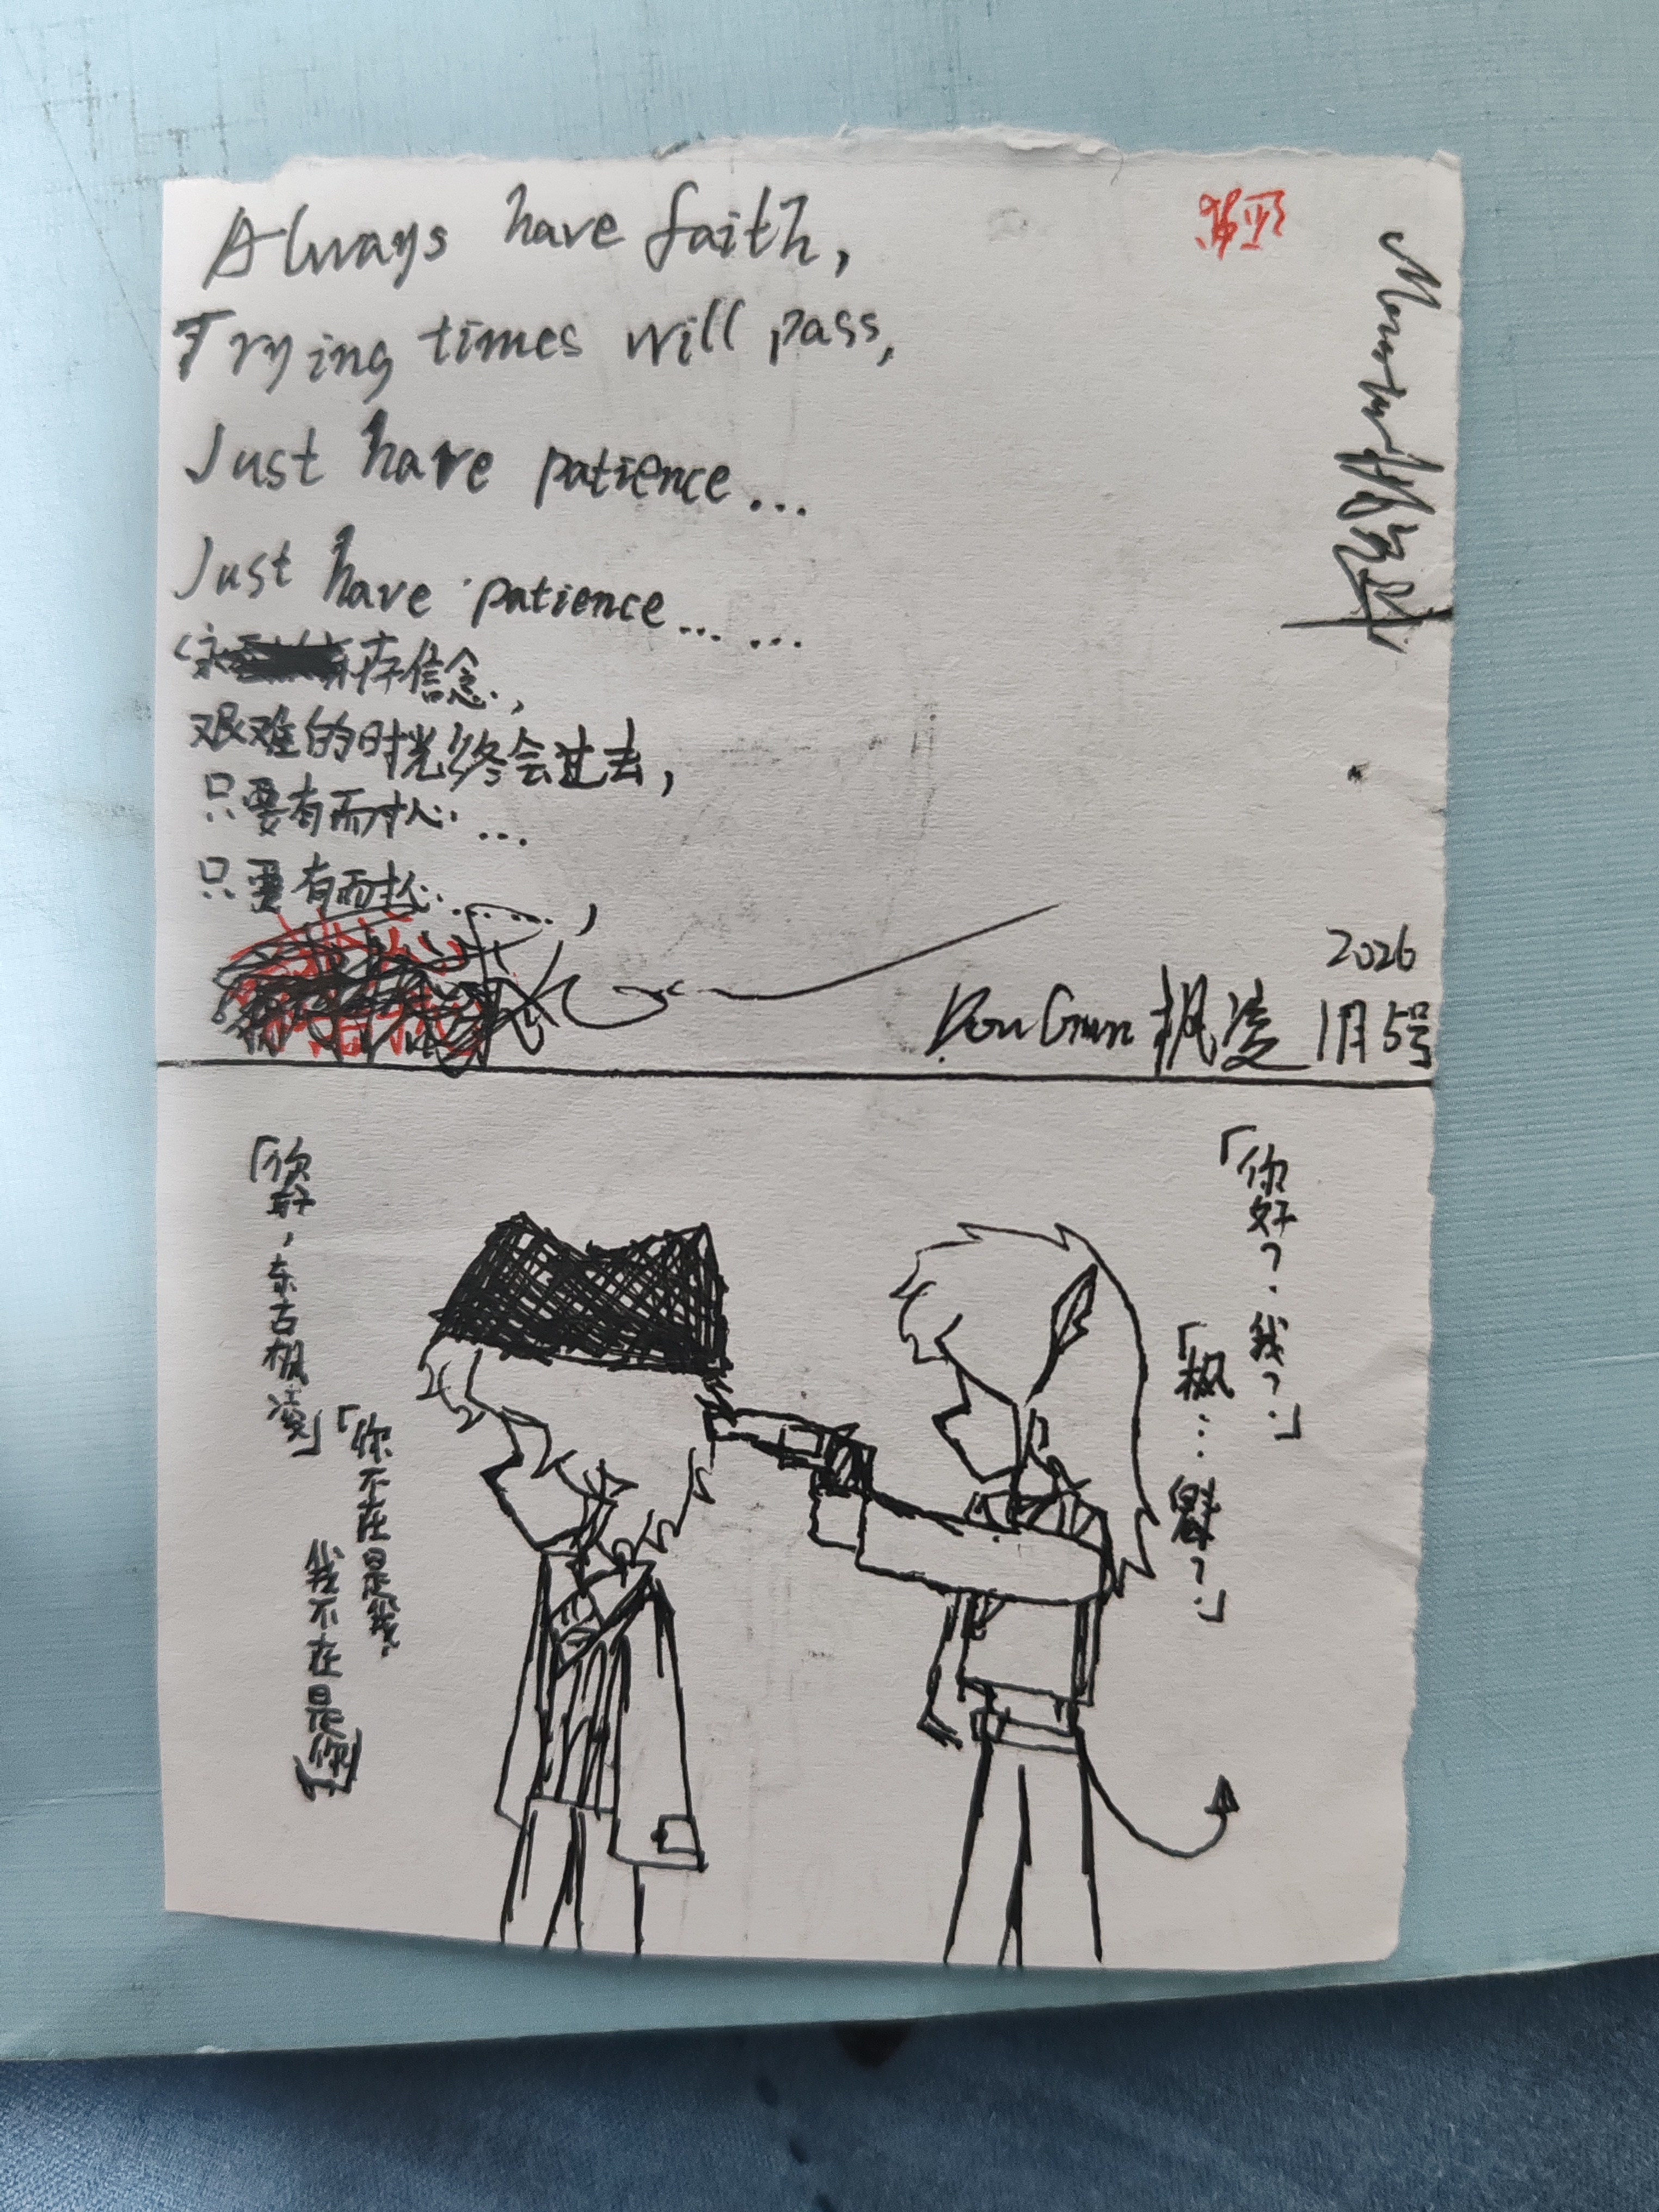 Always have faith,
Trying times will pass,
Just have patience...
Just have patience... ...
存信念,
艰难的时光终会过去,
只要有耐心...
只要有耐心... ...,
2026
枫凌 1月5号
「你好,东古枫凌」
「你不在是我,
我不在是你」
「你好?.我?.」
「枫...?.」